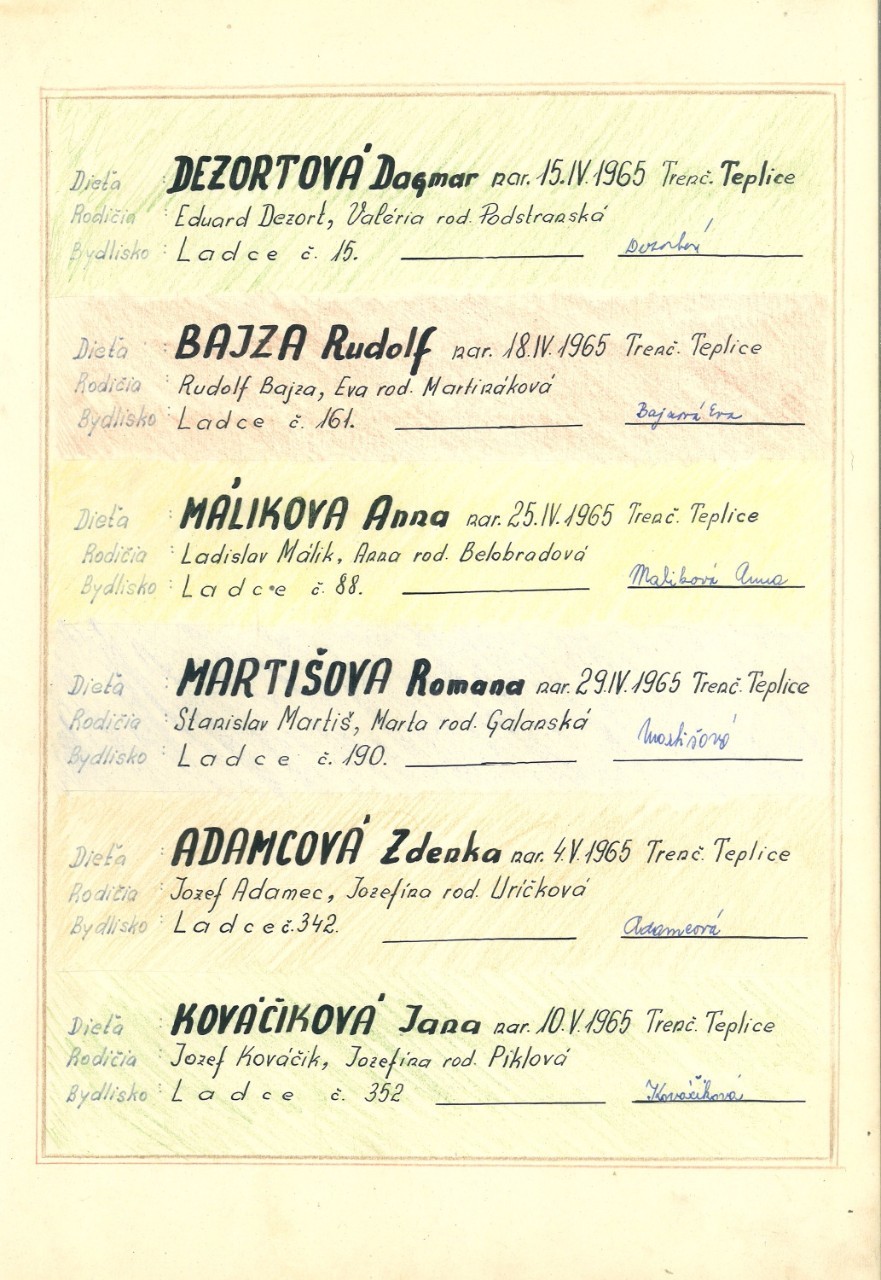 Dieťa : DEZORTOVÁ Dagmar nar. 15.IV.1965 Trenč. Teplice
Rodičia : Eduard Dezort, Valéria rod. Podstranská
Bydlisko : Ladce č. 15. Dezortová
Dieťa : BAJZA Rudolf nar. 18.IV.1965 Trenč. Teplice
Rodičia : Rudolf Bajza, Eva rod. Martináková
Bydlisko : Ladce č. 161. Bajzová Eva
Dieťa : MÁLIKOVA Anna nar. 25.IV.1965 Trenč. Teplice
Rodičia : Ladislav Málik, Anna rod. Belobradová
Bydlisko : Ladce č. 88. Maliková Anna
Dieťa : MARTIŠOVA Romana nar. 29.IV.1965 Trenč. Teplice
Rodičia : Stanislav Martiš, Marta rod. Galanská
Bydlisko : Ladce č. 190. Martišová
Dieťa : ADAMCOVÁ Zdenka nar. 4.V.1965 Trenč. Teplice
Rodičia : Jozef Adamec, Jozefína rod. Uríčková
Bydlisko : Ladce č. 342. Adamcová
Dieťa : KOVÁČIKOVÁ Jana nar. 10.V.1965 Trenč. Teplice
Rodičia : Jozef Kováčik, Jozefína rod. Piklová
Bydlisko : Ladce č. 352 Kováčiková